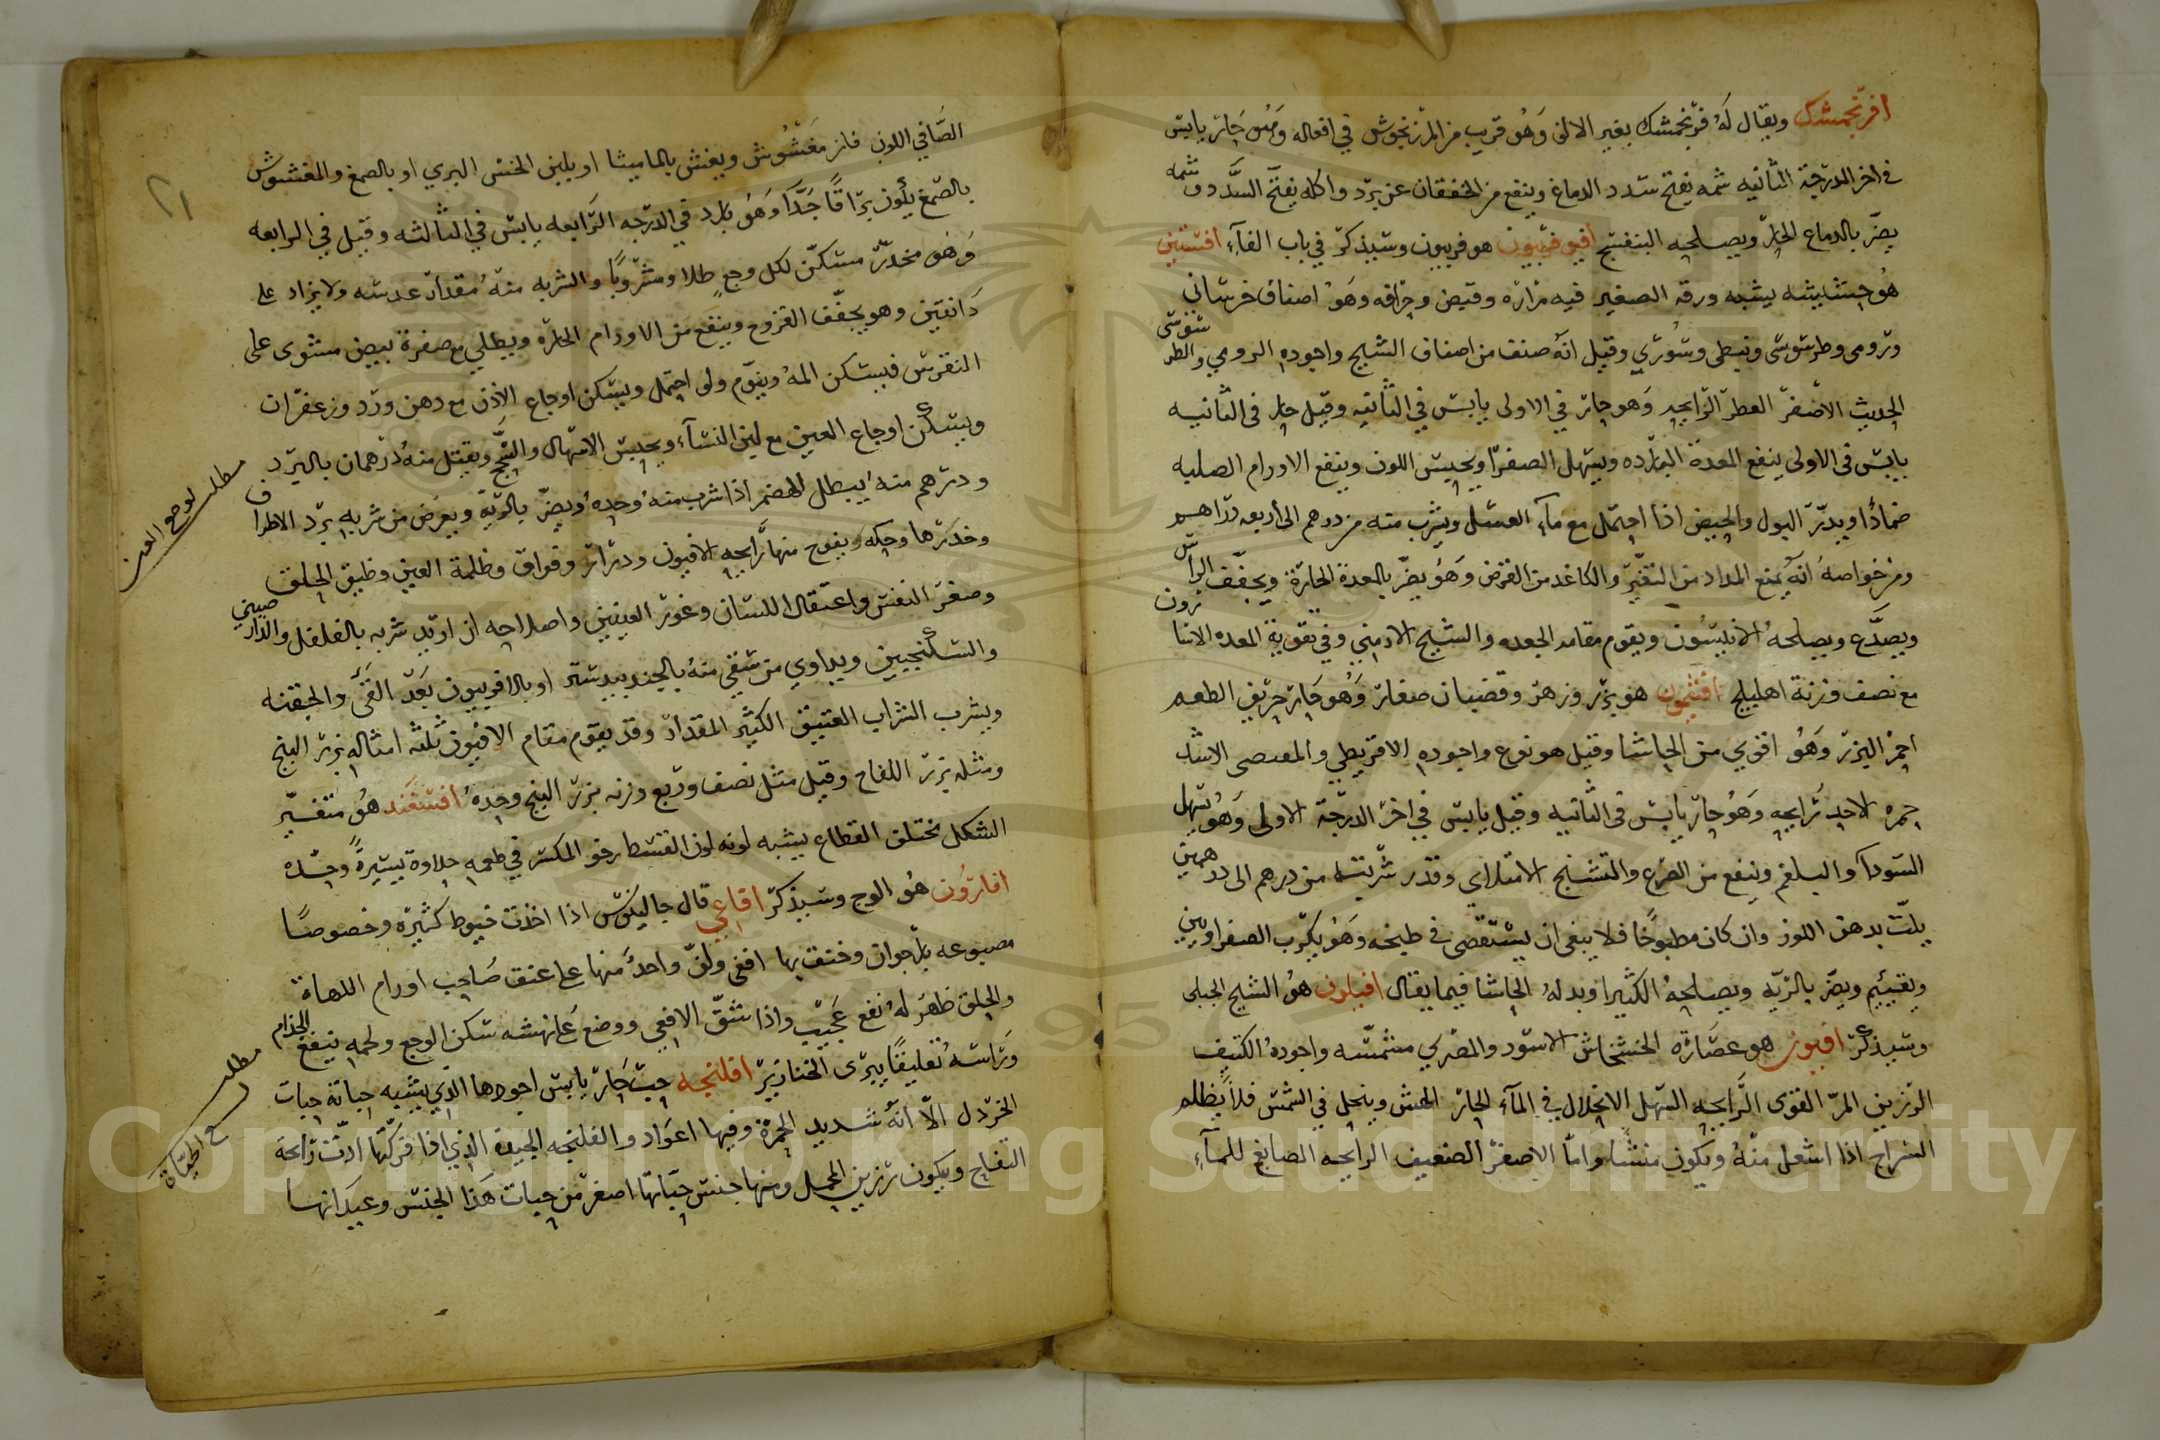 افرنجمشك ويقال له فرنجمشك بغير الالف وهو قريب من المرزنجوش في افعاله وهو حار يابس
في اخر الدرجة الثانيه شمه يفتح سدد الدماغ وينفع من الخفقان عن برد واكله يفتح السدد وشمه
يضر بالدماغ الحار ويصلحه البنفسج افيوفربيون هو فربيون وسيذكر في باب الفاء افسنتين
هو حشيشه يشبه ورقه الصغير فيه مراره وقبض وحرافه وهو اصناف خرساني
ورومي وطرسوسي ونبطي وسوري وقيل انه صنف من اصناف الشيح واجوده الرومي والطرسوسي
الحديث الاصفر العطر الرايحه وهو حار في الاولى يابس في الثانيه وقيل حار في الثانيه
يابس في الاولى ينفع المعدة البارده ويسهل الصفرا ويحسن اللون وينفع الاورام الصلبه
ضمادا ويدر البول والحيض اذا احتمل مع ماء العسل ويشرب منه من درهم الى اربعه دراهم
ومن خواصه انه يمنع المداد من التغير والكاغد من القرض وهو يضر بالمعدة الحارة ويجفف الراس
ويصدع ويصلحه الانيسون ويقوم مقامه الجعده والشيح الارميني وفي تقوية المعده الاسارون
مع نصف وزنة اهليلج افتيمون هو بزر وزهر وقضبان صغار وهو حار حريف الطعم
احمر البزر وهو اقوى من الحاشا وقيل هو نوع واجوده الاقريطي والمقدسي الاشد
حمره الاحد رايحه وهو حار يابس في الثانيه وقيل يابس في اخر الدرجة الاولى وهو يسهل
السودا والبلغم وينفع من الصرع والتشنج الامتلاي وقدر شربته من درهم الى درهمين
يلت بدهن اللوز وان كان مطبوخا فلا ينبغي ان يستقصى في طبخه وهو يكرب الصفراويين
ويقيئهم ويضر بالريه ويصلحه الكثيرا وبدله الحاشا فيما يقال افيلون هو الشيح الجبلي
وسيذكر افيون هو عصارة الخشخاش الاسود والمصري مشمسه واجوده الكثيف
الرزين المر القوى الرايحه السهل الانحلال في الماء الحار الهش وينحل في الشمس فلا يظلم
السراج اذا اشعل منه ويكون منشا واما الاصفر الضعيف الرايحه الصابغ للماء
٢١
الصافي اللون فانه مغشوش ويغش بالماميثا او بلبن الخس البري او بالصمغ والمغشوش
بالصمغ يكون براقا جدا وهو بارد في الدرجه الرابعه يابس في الثالثه وقيل في الرابعه
وهو مخدر مسكن لكل وجع طلا ومشروبا والشربه منه مقدار عدسه ولا يزاد على
دانقين وهو يجفف القروح وينفع من الاورام الحاره ويطلى مع صفرة بيض مشوى على
النقرس فيسكن المه وينوم ولو احتمل ويسكن اوجاع الاذن مع دهن ورد وزعفران
ويسكن اوجاع العين مع لبن النساء ويحبس الاسهال والسحج ويقتل منه درهمان بالبرد
ودرهم منه يبطل الهضم اذا شرب منه وحده ويضر بالرية ويعرض من شربه برد الاطراف
وخدرها وحكه ويفوح منها رايحه الافيون ودوار وفواق وظلمة العين وضيق الحلق
وصغر النفس واعتقال اللسان وغور العينين واصلاحه ان اريد شربه بالفلفل والدارصيني
والسكنجبين ويداوي من سقي منه بالجندبيدستر او بالافربيون بعد القئ والحقنه
ويشرب الشراب العتيق الكثير المقدار وقد يقوم مقام الافيون ثلثه امثاله بزر البنج
ومثله بزر اللفاح وقيل مثل نصف وربع وزنه بزر البنج وحده افسغند هو متغير
الشكل مختلف القطاع يشبه لونه لون القسط رخو المكسر في طعمه حلاوة يسيرة وحده
افارون هو الوج وسيذكر افاعي قال جالينوس اذا اخذت خيوط كثيرة وخصوصا
مصبوغه بارجوان وخنق بها افعى ولف واحد منها على عنق صاحب اورام اللهاة
والحلق ظهر له نفع عجيب واذا شق الافعى ووضع على نهشه سكن الوجع ولحمه ينفع الجذام
وراسه تعليقا يبرى الخنازير افلنجه حب حار يابس اجودها الذي يشبه حباته حبات
الخردل الا انه شديد الحمرة وفيها اعواد والفلنجه الجيدة الذي اذا فركتها ادت رايحة
التفاح ويكون رزين المحمل ومنها جنس حباتها اصغر من حبات هذا الجنس وعيدانها
مطلب لوجع العين
مطلب